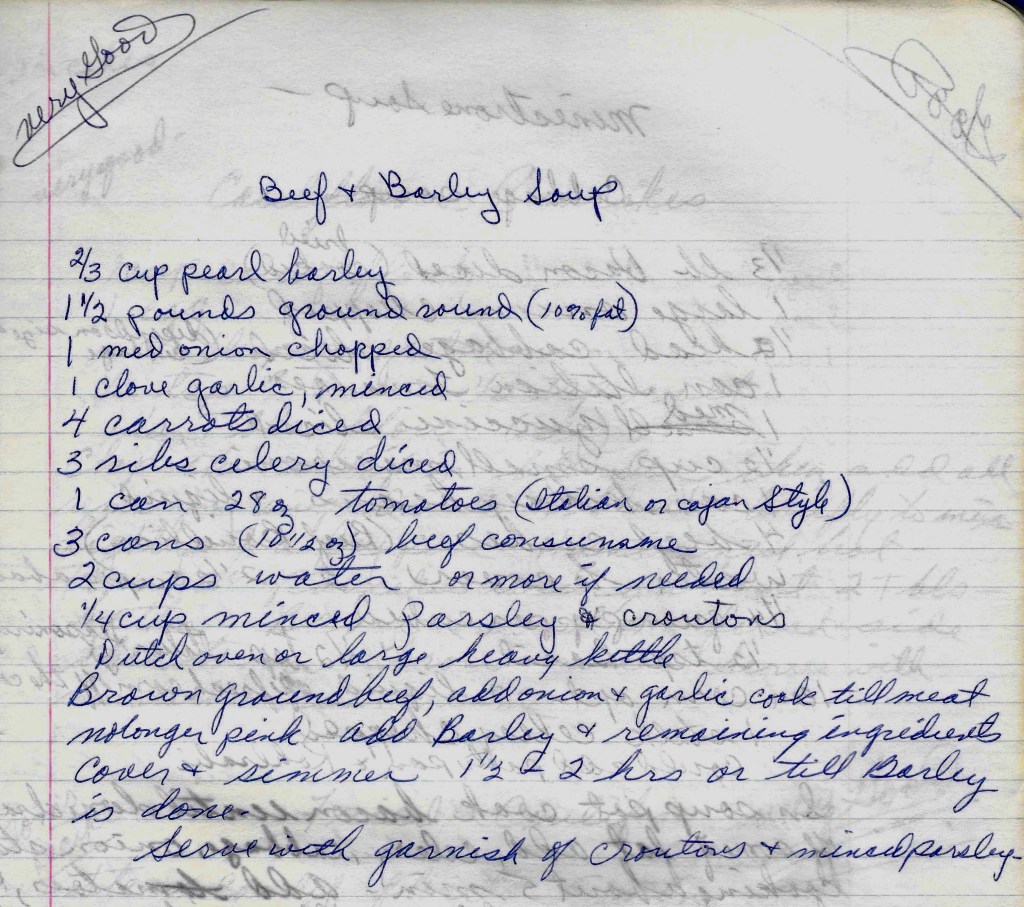 very Good
Good
Beef & Barley Soup
2/3 cup pearl barley
1 1/2 pounds ground round (10% fat)
1 med onion chopped
1 clove garlic, minced
4 carrots diced
3 ribs celery diced
1 can 28 oz tomatoes (Italian or cajan Style)
3 cans (10 1/2 oz) beef consumame
2 cups water or more if needed
1/4 cup minced parsley & croutons
Dutch oven or large heavy kettle
Brown ground beef, add onion & garlic cook till meat
no longer pink add Barley & remaining ingredients
Cover & simmer 1 1/2 - 2 hrs or till Barley
is done.
Serve with garnish of croutons & minced parsley-